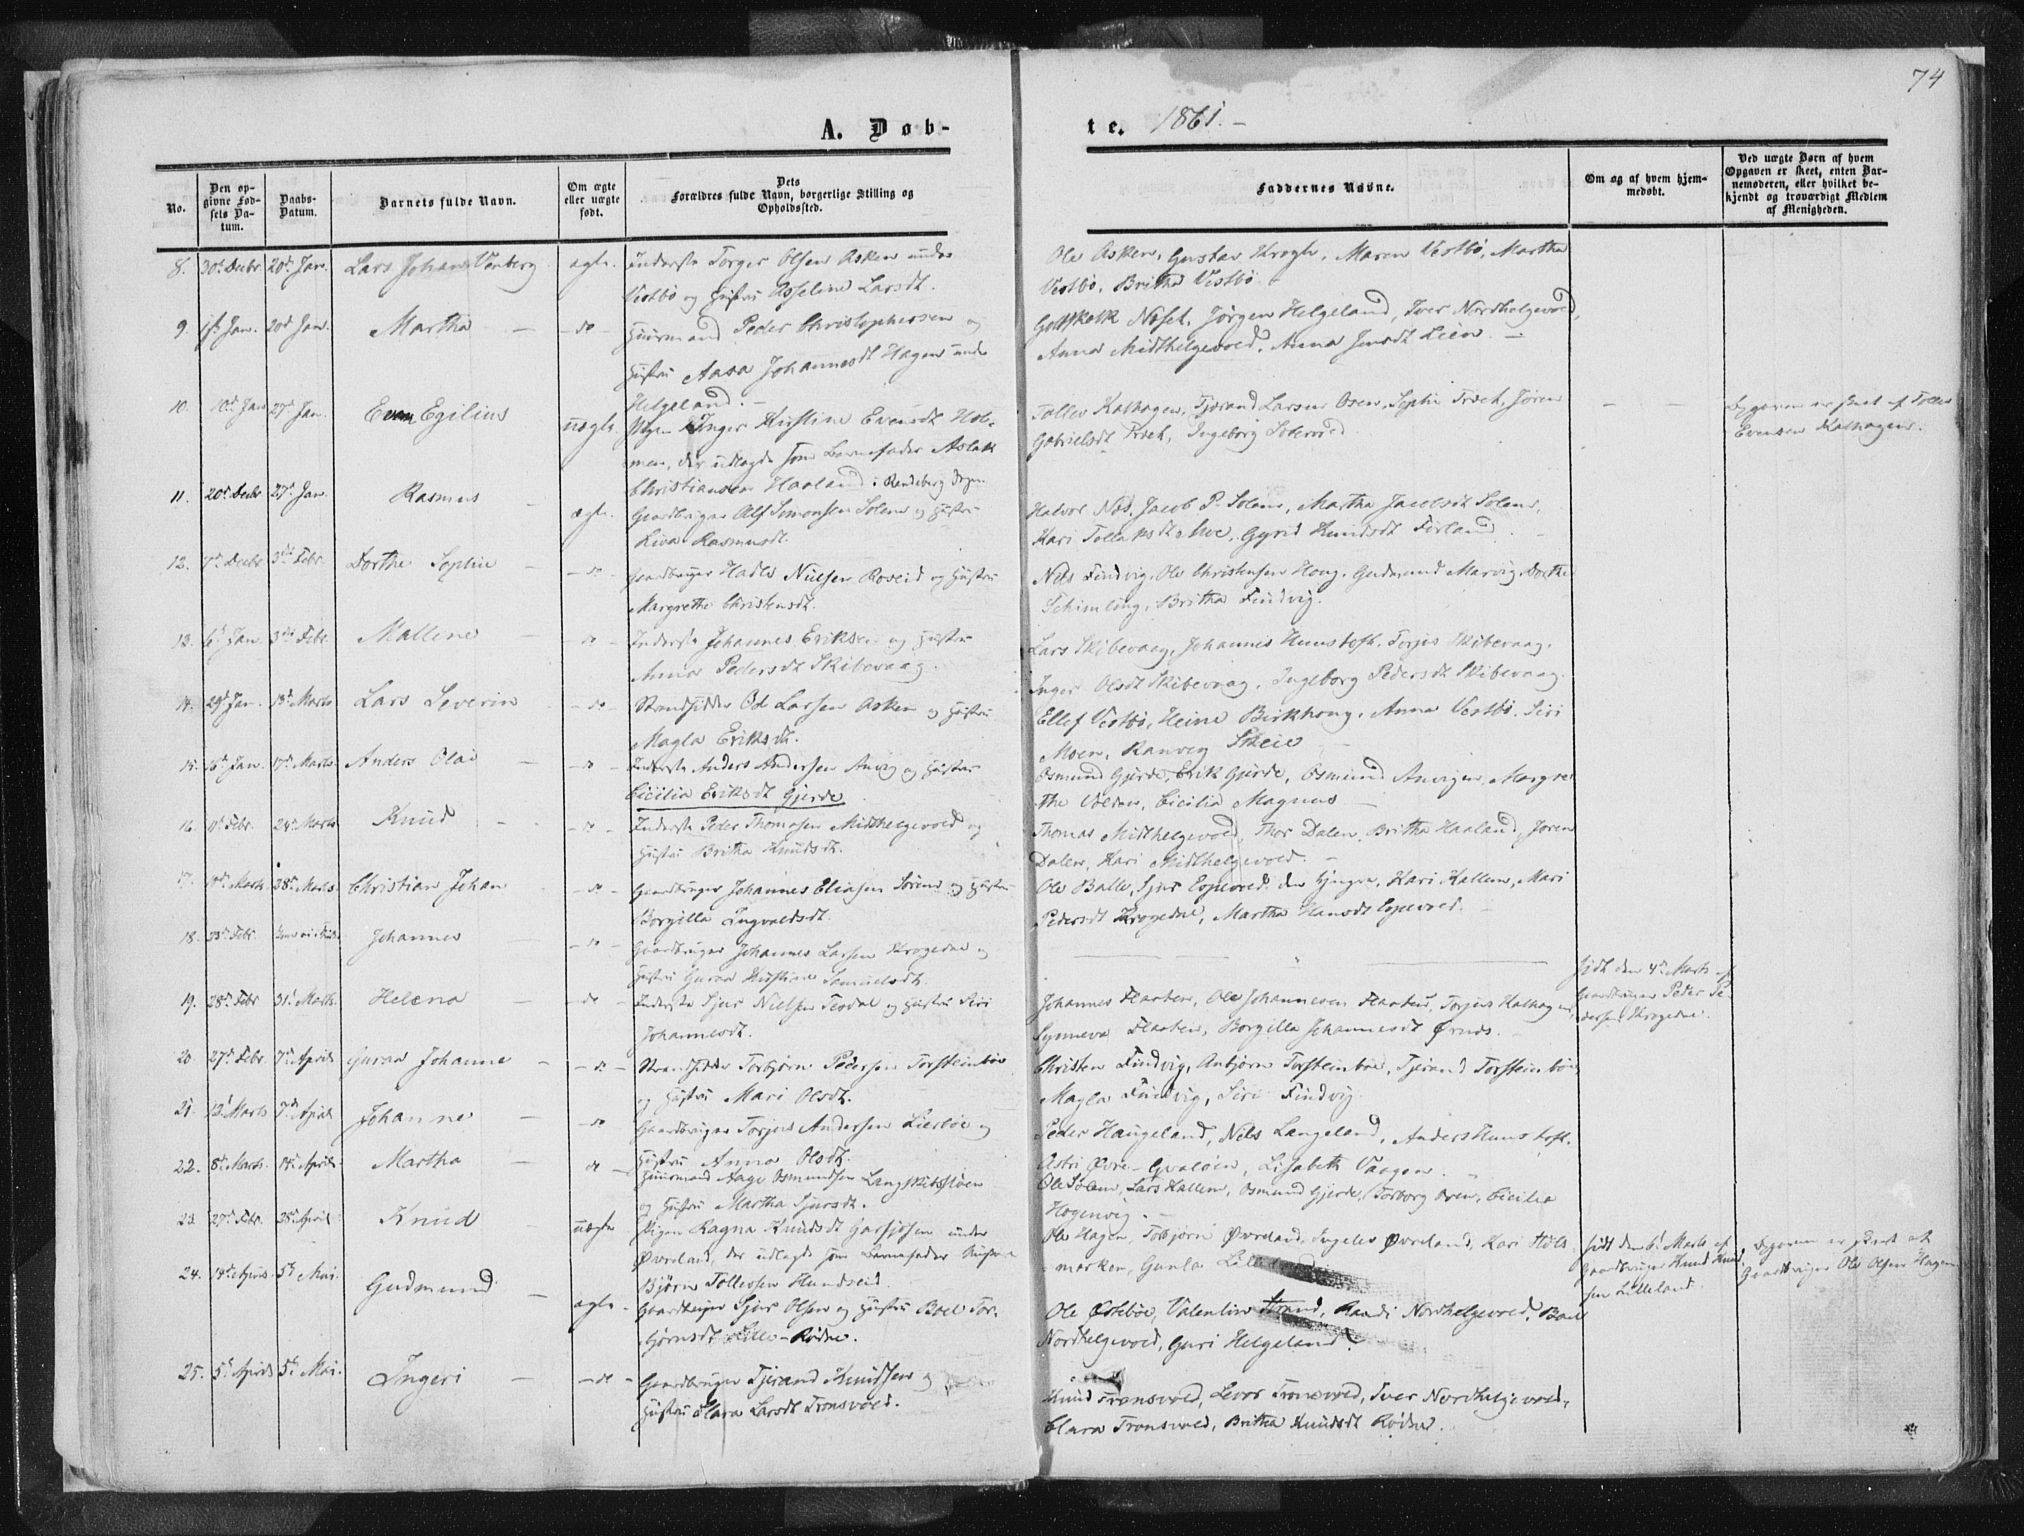 74
A. Døb-
te. 1861. -
No.
Den op-
givne Fød-
sels Da-
tum.
Daabs-
Datum.
Barnets fulde Navn.
Om ægte
eller uægte
født.
Dets
Forældres fulde Navn, borgerlige Stilling og
Opholdssted.
Faddernes Navne.
Om og af hvem hjem-
medøbt.
Ved uægte Børn af hvem
Opgaven er skeet, enten Bar-
nemoderen, eller hvilket be-
kjendt og troværdigt Medlem
af Menigheden.
8. 30d Decbr 20d Jan. Lars Johan ægte. Inderste Torger Olsen Asken under
Vestbø og Hustru Asseline Larsdt.
Ole Asken, Gustav Krogh, Maren Vestbø, Martha
Vestbø, Britha Vestbø
9. 1st Jan. 20d Jan. Martha - do - Huusmand Peder Christophersen og
Hustru Aasa Johannesdt Hagen under
Helgeland. -
Gottskalk Næset, Jørgen Helgeland, Iver Nordhelgevold,
Anna Midthelgevold, Anna Jensdt Lien. -
10. 10d Jan 27d Jan. Even Egilius uægte. Pigen Inger Kirstine Evensdt Hol-
men, der udlagde som Barnefader Aslak
Christiansen Haaland i
Tollev Kalhagen, Tjerand Larsen Osen, Sophie Træet, Jøren
Gabrielsdt Træet, Ingeborg
Opgaven er skeet af Tollev
Evensen Kalhagen.
11. 20d Decbr 27d Jan. Rasmus - ægte. Gaardbruger Alf Simonsen Solem og Hustru
Liva Rasmusdt.
Halvor Næs, Jacob P. Solem, Martha Jacobsdt Solem,
Kari Tollaksdt Moe, Gyrid Knudsdt Førland.
12. 7d Decbr 3die Febr. Dorthe Sophie - do - Gaardbruger Hadle Nielsen Røveid og Hustru
Margrethe Christensdt.
Nels Findvig, Ole Christensen Houg, Gudmund Marvig, Dorthe
Schimling, Britha Findvig.
13. 6d Jan. 3die Febr. Mallene - do - Inderste Johannes Eriksen og Hustru
Anna Pedersdt Skibevaag.
Lars Skibevaag, Johannes Huustoft, Torjus Skibevaag,
Inger Olsdt Skibevaag, Ingeborg Pedersdt Skibevaag.
14. 29d Jan. Marts Lars Severin - do - Strandsidder Od Larsen Asken og Hustru
Magla Eriksdt.
Ellef Vestbø, Heine Birkhoug, Anna Vestbø, Siri
Moen, Ranveig Skeie -
15. 16d Jan. 17d Marts Anders Olai - do - Inderste Anders Andersen Anvig og Hustru
Cicilia Eriksdt Gjerde
Osmund Gjerde, Erik Gjerde, Osmund Anvigen, Margre-
the Volden, Cicilia Magnus -
16. Febr. 24d Marts Knud - do - Inderste Peder Thomasen Midthelgevold og
Hustru Britha Knudsdt.
Thomas Midthelgevold, Thor Dalen, Britha Haaland, Jøren
Dalen, Kari Midthelgevold. -
17. Marts 28d Marts Christian Johan - do - Gaardbruger Johannes Eliasen og Hustru
Borgilla Ingvaldsdt.
Ole Balle, Sjur Espevold den Yngre, Kari Hallem, Mari
Pedersdt Krogedne, Martha Hansdt Espevold. -
18. Febr. Johannes - do - Gaardbruger Johannes Larsen Krogedne og
Hustru Guroe Kirstine Samuelsdt.
født den 4d Marts af
Gaardbruger Peder Pe-
dersen Krogedne.
19. 28d Febr 31d Marts Helena - do - Inderste Sjur Nielsen Tesdal og Hustru Siri
Johannesdt.
Johannes Flaaten, Ole Johannesen Flaaten, Torjus Kalhagen,
Synneva Flaaten, Borgilla Johannesdt Ørnds. -
20 27d Febr. 7d April Guroe Johanne - do - Strandsidder Torbjørn Pedersen Torsteinbøe
og Hustru Mari Olsdt.
Christen Findvig, Anbjørn Torsteinbøe, Tjerand Torsteinbøe,
Magla Findvig, Siri Findvig.
21. 12d Marts 7d April Johanne - do - Gaardbruger Torjus Andersen Lierbøe og
Hustru Anna Olsdt.
Peder Haugeland, Nels Langeland, Anders Huustoft,
Astri Øvre-Qvaløen, Lisabeth Vaagen. -
22. 8d Marts. 14d April. Martha - do - Huusmand Aage Osmundsen Langskibsstøen
og Hustru Martha Sjursdt.
Ole Solem, Lars Hallem, Osmund Gjerde, Torborg Øren, Cicilia
Hogenvig. -
23. 27d Febr. 28d April Knud uægte Pigen Ragna Knudsdt under
Øvreland, der udlagde som Barnefader
Bjørn Tollevsen Hundseid.
Ole Hagen, Torbjørn Øvreland, Ingelev Øvreland, Kari Holt-
marken, Gunla
født den 6d Marts af
Gaardbruger Knud Knud-
sen Lilleland.
Opgaven er skeet af
Gaardbruger Ole Olsen Hagen
24. 14d April 5d Mai. Gudmund - ægte - Gaardbruger Sjur Olsen og Hustru Boel Tor-
bjørnsdt Lille-Rødne.
Ole Østebøe, Valentin Strand, Randi Nordhelgevold, Boel
Nordhelgevold, Guri Helgeland.
25. 5d April 5d Mai. Ingeri - do - Gaardbruger Tjerand Knudsen og
Hustru Clara Larsdt Tronsvold.
Knud Tronsvold, Levor Tronsvold, Iver Nordhelgevold,
Clara Tronsvold, Britha Knudsdt Rødne.